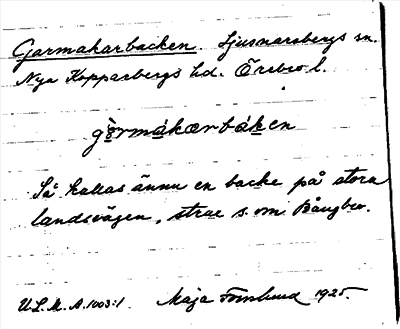 Garmakarbacken. Ljusnarsbergs sn.
Nya Kopparbergs hd. Örebro l.
görmákærbáken
Så kallas ännu en backe på stora
landsvägen, strax s. om Bångbro.
U.L.M.A. 1003:1. Maja 1925.